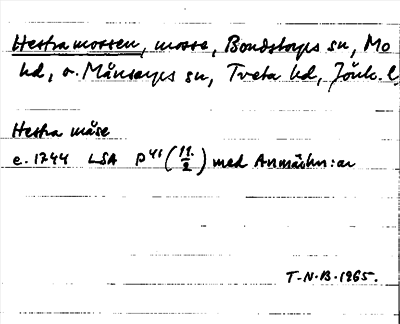 Hestra mossen, mosse, Bondstorps sn, Mo
hd, o. Månsarps sn, Tveta hd, Jönk. l.
Hestra måse
c. 1744 LSA P41 (11./2) med Anmärkn:ar
T-N-B-1965.